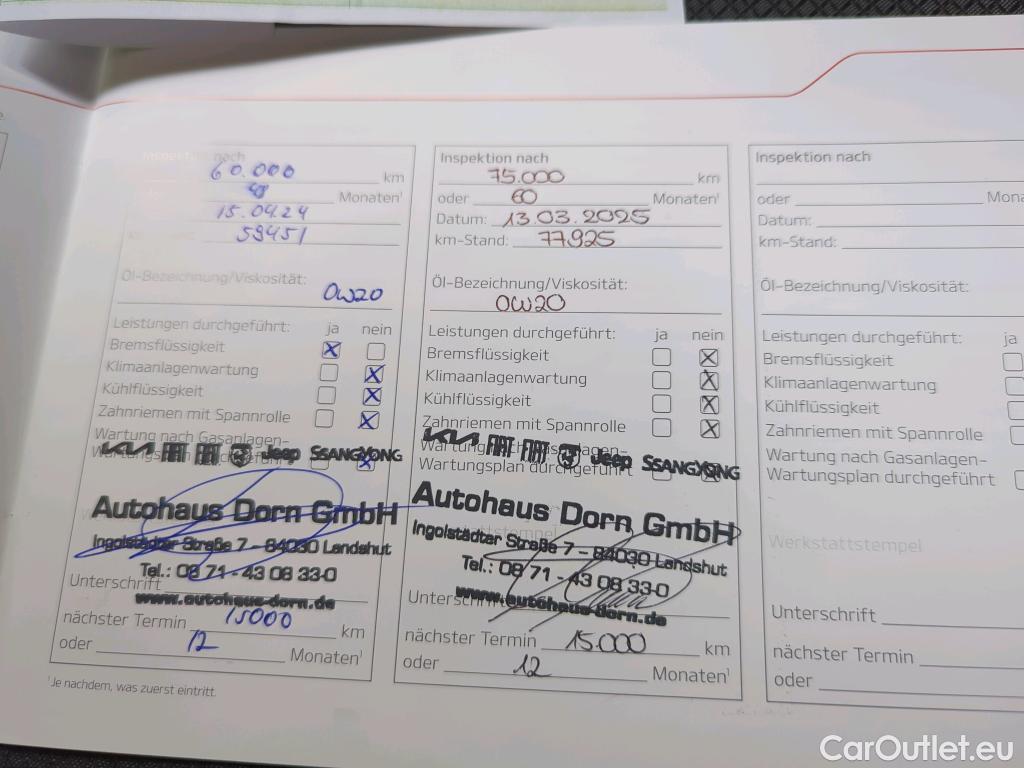 Inspektion nach
60.000 km
48 Monaten¹
15.04.24
59451
Öl-Bezeichnung/Viskosität:
0W20
Leistungen durchgeführt: ja nein
Bremsflüssigkeit
Klimaanlagenwartung
Kühlflüssigkeit
Zahnriemen mit Spannrolle
Wartung nach Gasanlagen-
Wartungsplan durchgeführt
KIA FIAT FIAT Jeep SSANGYONG
Autohaus Dorn GmbH
Ingolstädter Straße 7 - 84030 Landshut
Tel.: 08 71 - 43 08 33-0
Unterschrift
www.autohaus-dorn.de
nächster Termin 15000 km
oder 12 Monaten¹
¹Je nachdem, was zuerst eintritt.
Inspektion nach
75.000 km
oder 60 Monaten¹
Datum: 13.03.2025
km-Stand: 77925
Öl-Bezeichnung/Viskosität:
0W20
Leistungen durchgeführt: ja nein
Bremsflüssigkeit
Klimaanlagenwartung
Kühlflüssigkeit
Zahnriemen mit Spannrolle
Wartung nach Gasanlagen-
Wartungsplan durchgeführt
KIA FIAT FIAT Jeep SSANGYONG
Autohaus Dorn GmbH
Ingolstädter Straße 7 - 84030 Landshut
Tel.: 08 71 - 43 08 33-0
Unterschrift
www.autohaus-dorn.de
nächster Termin 15.000 km
oder 12 Monaten¹
Inspektion nach
oder Mona
Datum:
km-Stand:
Öl-Bezeichnung/Viskosität:
Leistungen durchgeführt: ja
Bremsflüssigkeit
Klimaanlagenwartung
Kühlflüssigkeit
Zahnriemen mit Spannrolle
Wartung nach Gasanlagen-
Wartungsplan durchgeführt
Werkstattstempel
Unterschrift
nächster Termin
oder
CarOutlet.eu